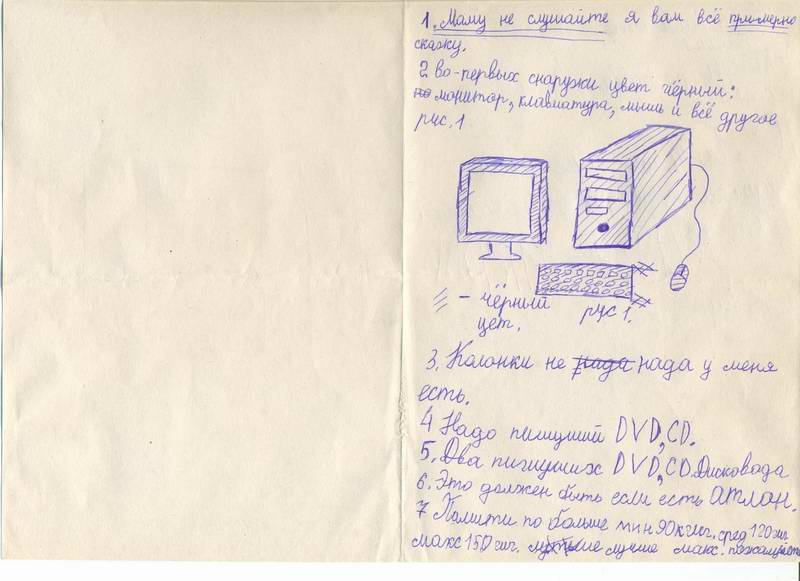 1. Маму не слушайте я вам всё примерно
скажу.
2 во-первых снаружи цвет чёрный:
монитор, клавиатура, мышь и всё другое
рис. 1
– чёрный
цет.
рис 1.
3. Колонки не нада нада у меня
есть.
4 Надо пишущий DVD, CD.
5. Два пигущих DVD, CD. Дисковада
6. Это должен быть если есть атлон.
7 Памити по больше мин 90 кгиг. сред 120 гиг
макс 150 гиг. лучше макс. пожалуйста